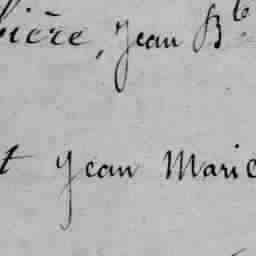 ière, Jean Bte
t Jean Marie